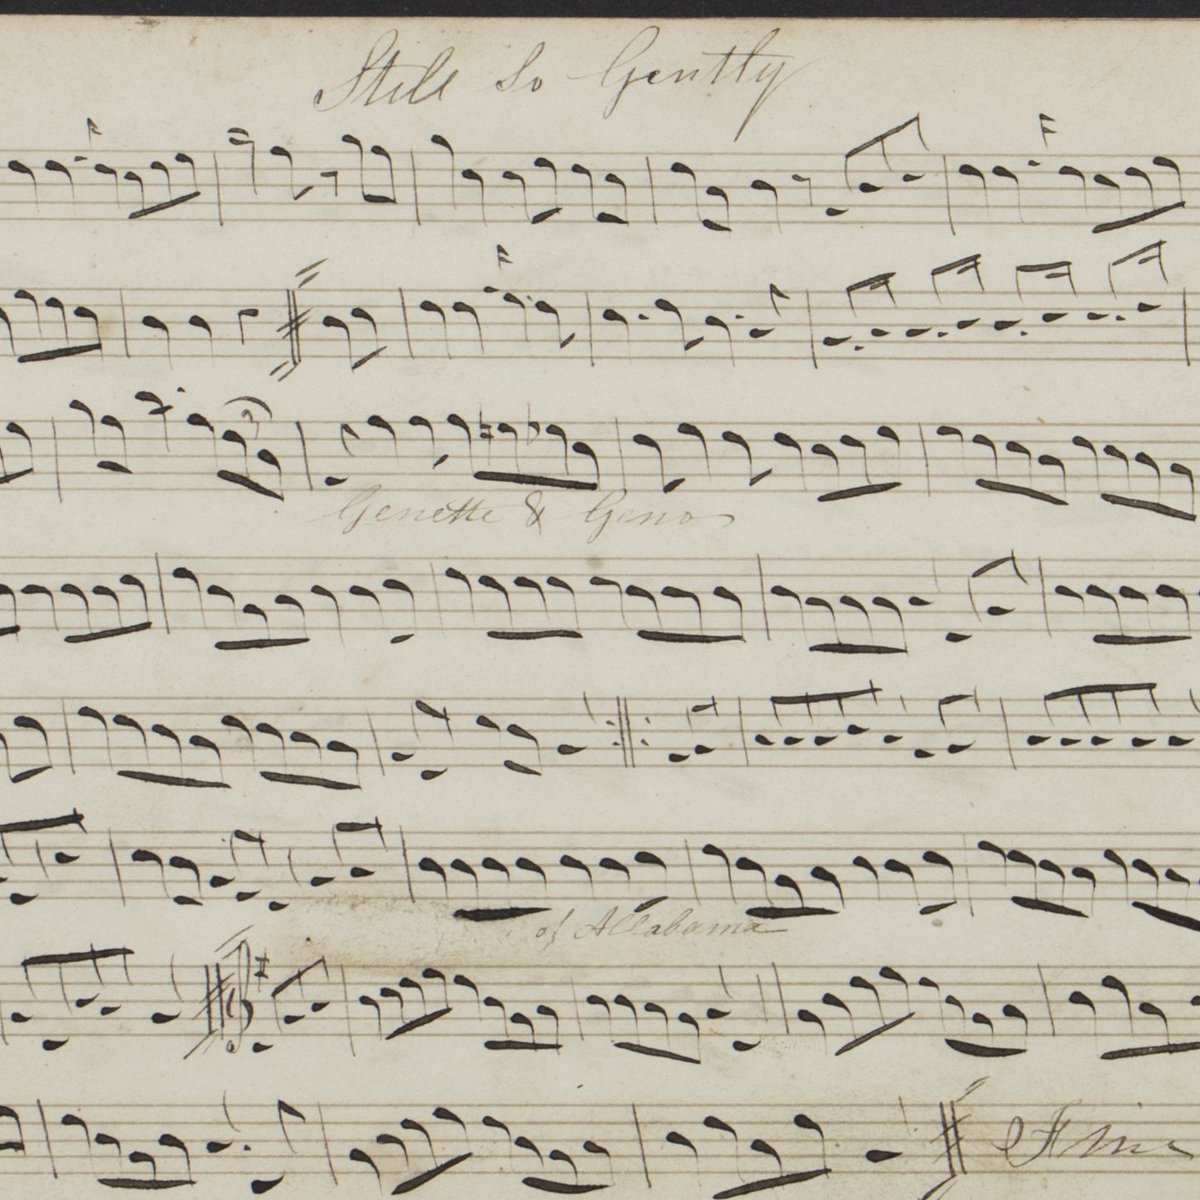 Still So Gently
Genette & Geno
of Allabama
Fine